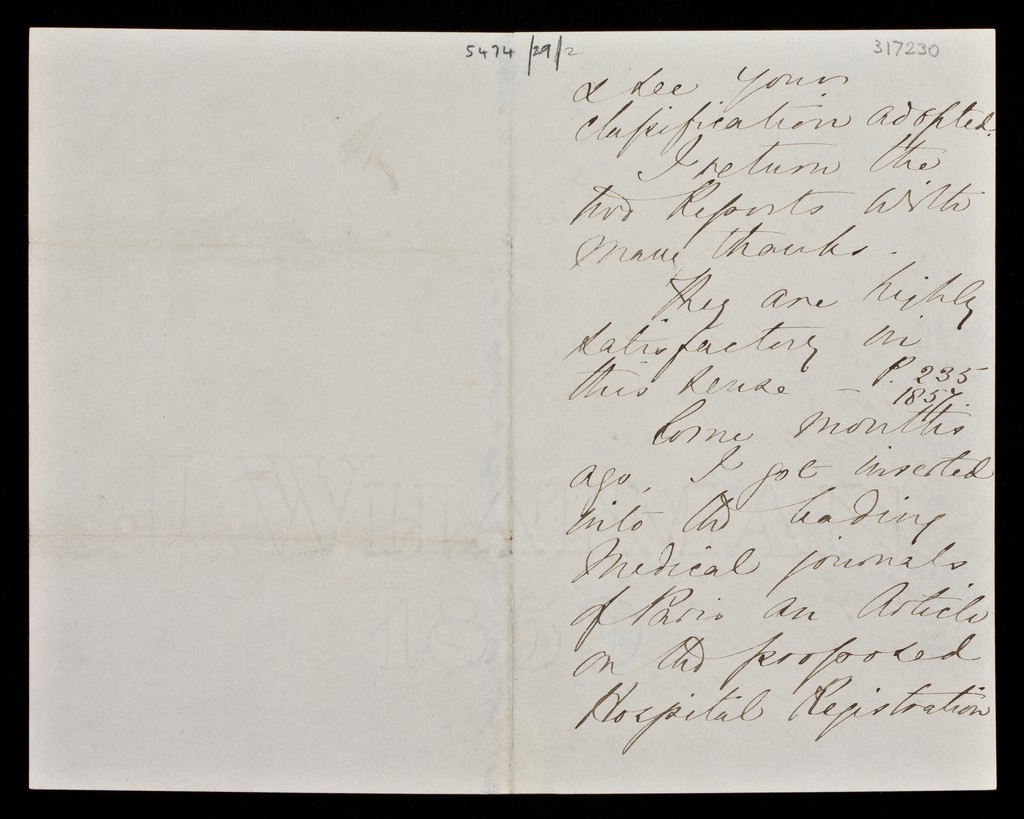 5474/29/2
317230
& see your
classification adopted.
I return the
two Reports with
many thanks.
They are highly
satisfactory in
this sense – P. 235
1857.
Some months
ago, I got inserted
into the leading
Medical journals
of Paris an Article
on the proposed
Hospital Registration
J WHATMAN